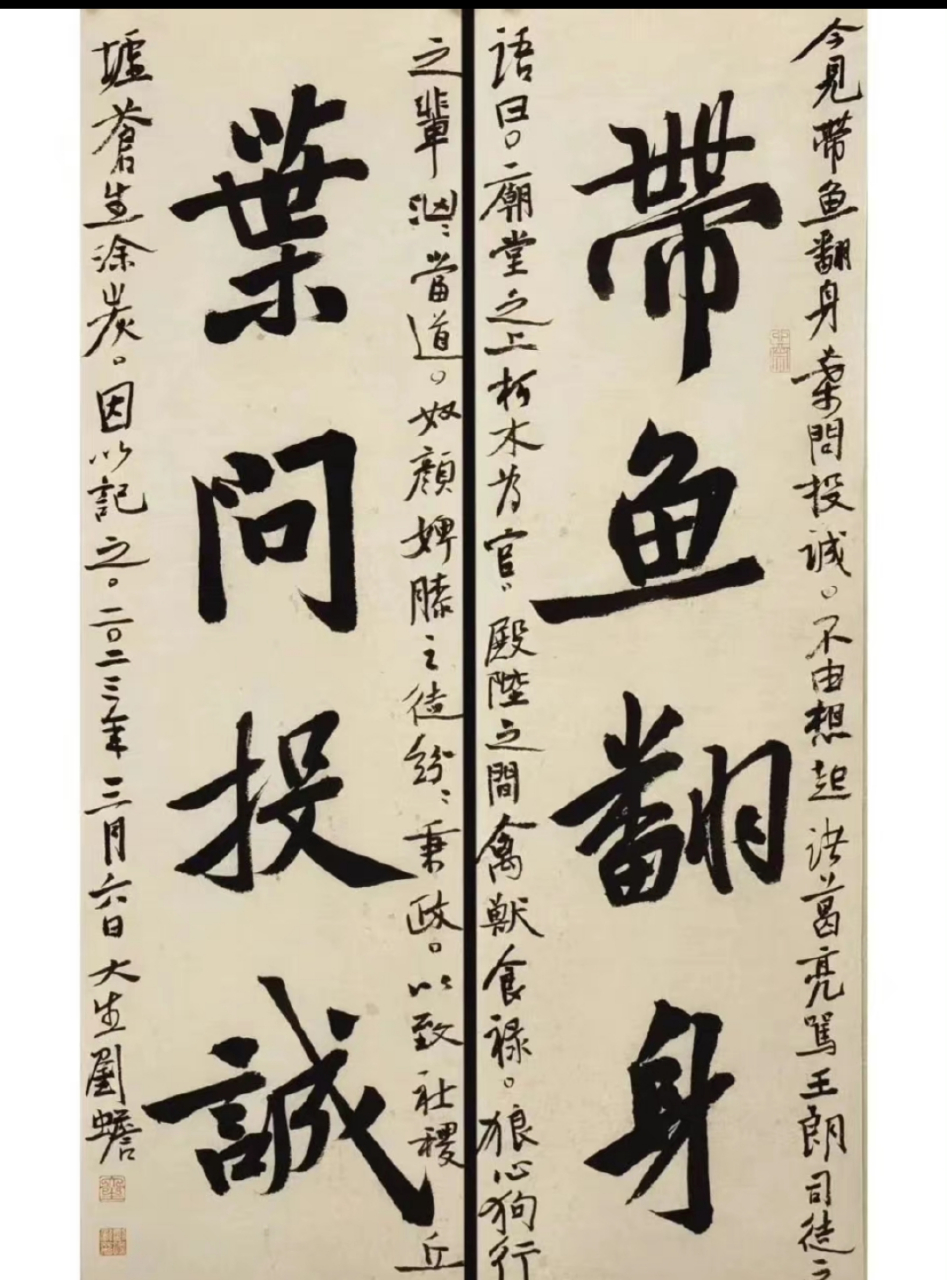 今見帶鱼翻身葉問投誠。不由想起諸葛亮罵王朗司徒之
帶鱼翻身
語曰。廟堂之上朽木為官。殿陛之間禽獸食禄。狼心狗行
之輩汹汹當道。奴顏婢膝之徒紛紛秉政。以致社稷丘
葉問投誠
墟蒼生涂炭。因以記之。二〇二三年三月六日大生劉蟾